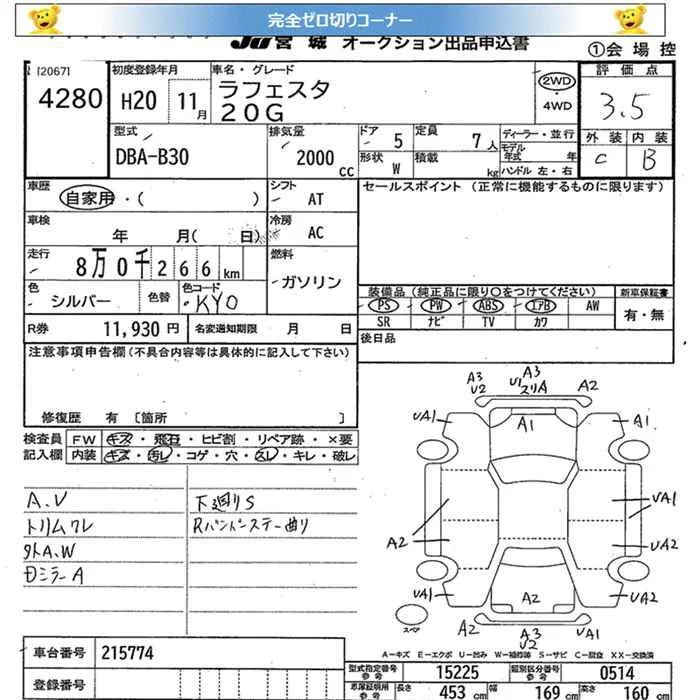 完全ゼロ切りコーナー
JU 宮 城 オークション出品申込書 ①会 場 控
[2067]
4280
初度登録年月
H20 11月
車名・グレード
ラフェスタ
20G
2WD
・
4WD
評 価 点
3.5
外 装 内 装
C B
型式
DBA-B30
排気量
2000 CC
ドア 5
定員 7人
形状 W
積載 kg
ディーラー・並行
モデル年式 年
ハンドル 左・右
車歴
自家用・( )
シフト
AT
セールスポイント (正常に機能するものに限ります)
車検
年 月( 日)
冷房
AC
走行
8万0千266km
燃料
ガソリン
色
シルバー
色替
色コード
KY0
装備品(純正品に限り○をつけてください)
新車保証書
PS PW ABS エアB AW
SR ナビ TV カワ
有・無
R券 11,930 円
名変通知期限 月 日
後日品
注意事項申告欄(不具合内容等は具体的に記入して下さい)
修復歴 有 〔箇所 〕
検査員
記入欄
FW キズ・飛石・ヒビ割・リペア跡・×要
内装 キズ・汚レ・コゲ・穴・スレ・キレ・破レ
A.V
トリムワレ
外A.W
日ミラーA
下廻りS
Rバンパーステー曲り
A3
U2
A3
U1
スリA
A2
UA1
A1
A1
A2
UA1
UA2
UA2
UA2
A2
A2
A3
U2
スペア
A2
A-キズ E-エクボ U-凹み W-補修跡 S-サビ C-腐食 XX-交換済
車台番号 215774
登録番号
型式指定番号
参考
15225
類別区分番号
参考
0514
車庫証明用
参考
長さ 453 cm
幅 169 cm
高さ 160 cm